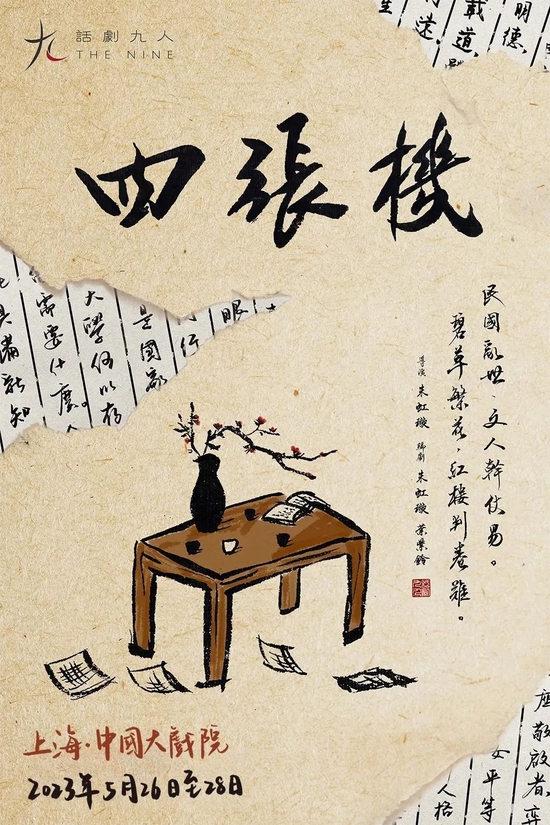 話劇九人
THE NINE
四張機
民國亂世，文人幹仗易。
碧草繁花，紅樓判卷難。
導演 朱虹璇 編劇 朱虹璇 葉紫鈴
明德
載道
遠。
眼
行
是國家
大學何以存
需要什麼。
具備新知
上海·中國大戲院
2023年5月26日至28日
座敬啟者：弈
女平等
人格